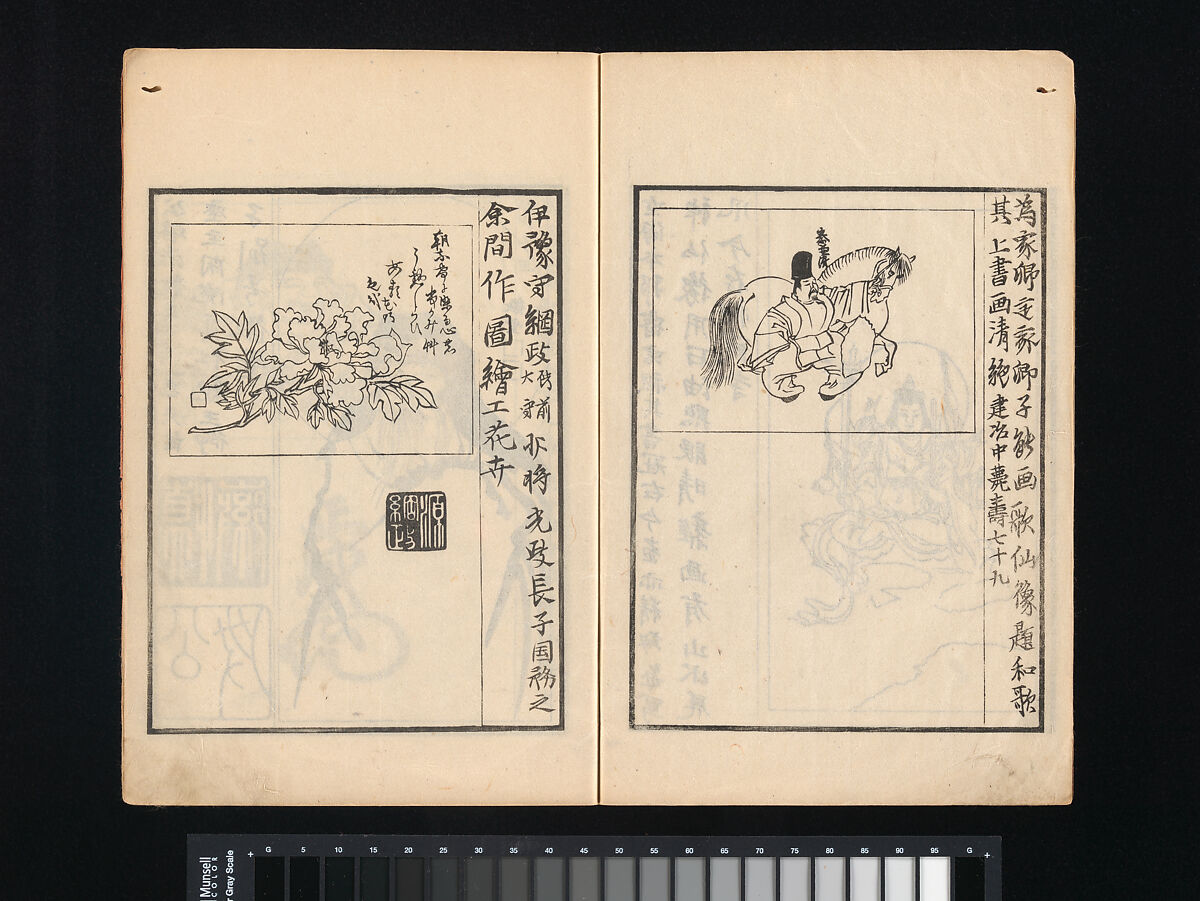 為家卿定家卿子能画歌仙像題和歌
其上書画清絶建治中薨壽七十九
伊豫守綱政備前大守少將光政長子国務之
余間作圖繪工花卉
源綱政
Munsell
COLOR
r Gray Scale
G 5 10 15 20 25 30 35 40 45 50 55 60 65 70 75 80 85 90 95 G